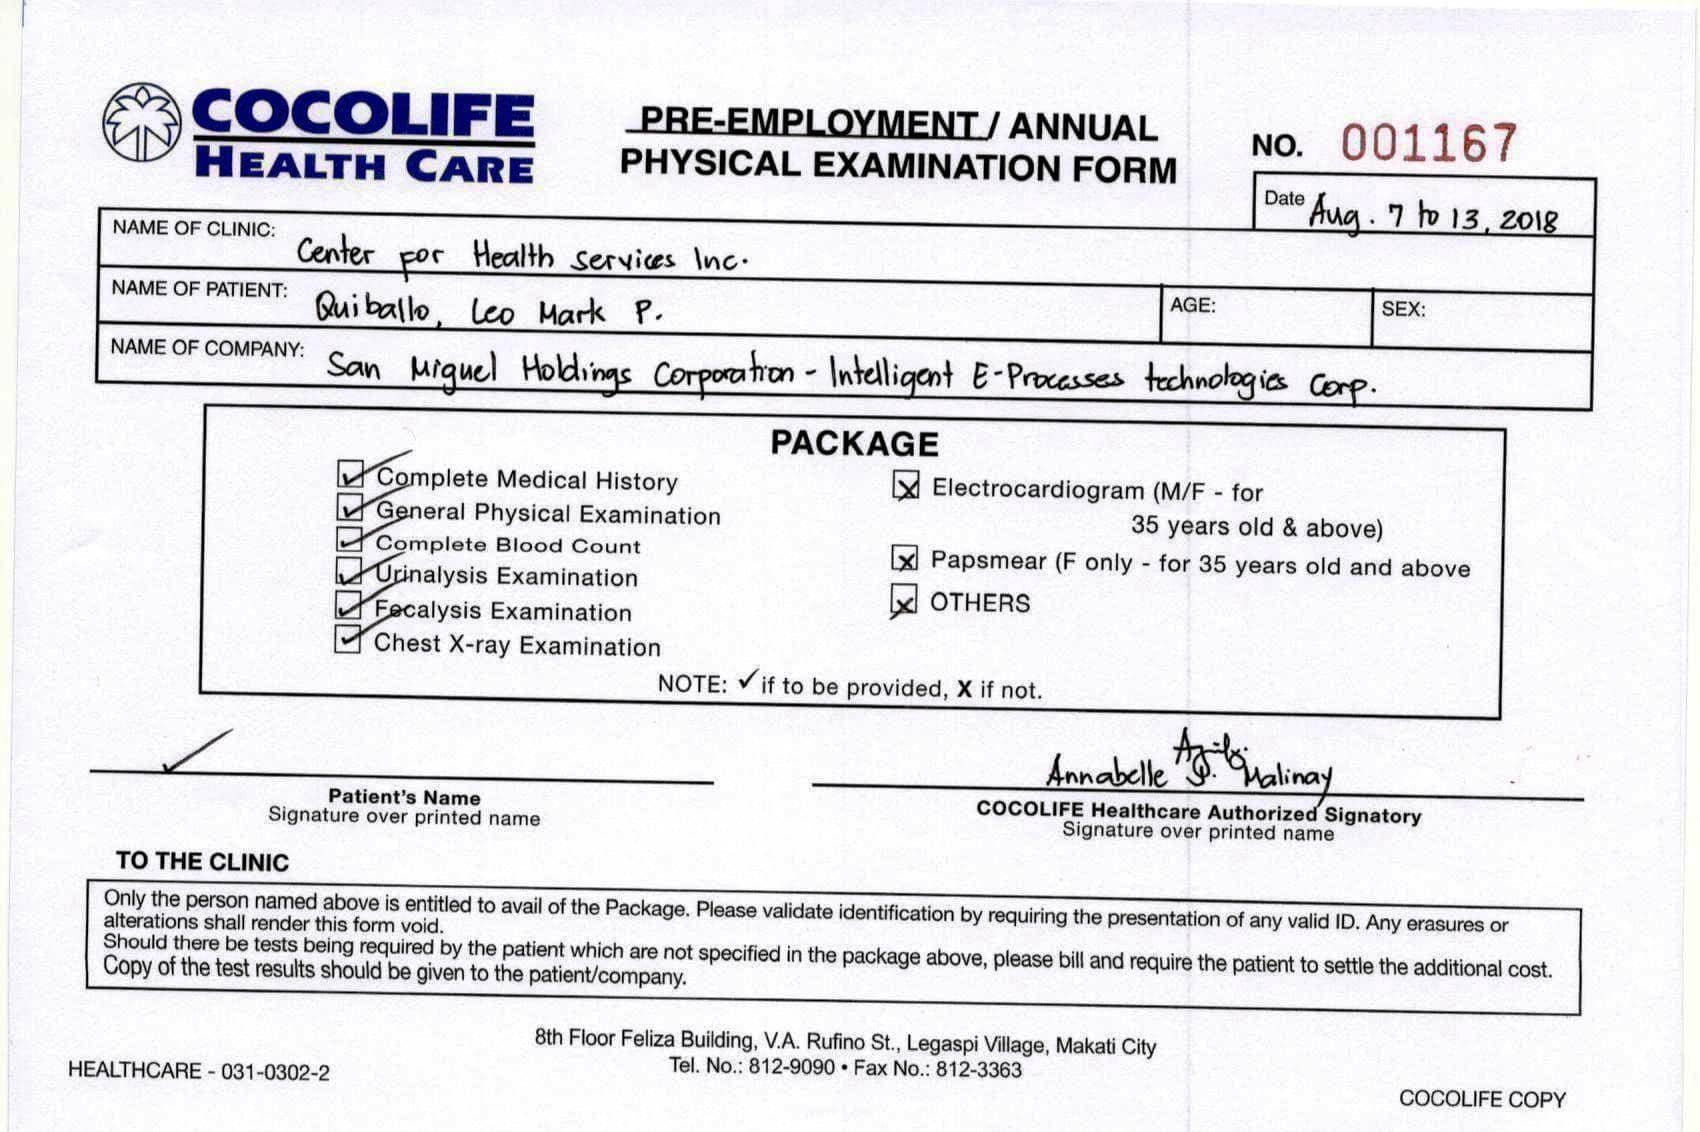 COCOLIFE
HEALTH CARE
PRE-EMPLOYMENT / ANNUAL
PHYSICAL EXAMINATION FORM
NO. 001167
Date Aug. 7 to 13, 2018
NAME OF CLINIC: Center for Health Services Inc.
NAME OF PATIENT: Quiballo, Leo Mark P.
AGE:
SEX:
NAME OF COMPANY: San Miguel Holdings Corporation - Intelligent E-Processes technologies Corp.
PACKAGE
✓ Complete Medical History
✓ General Physical Examination
✓ Complete Blood Count
✓ Urinalysis Examination
✓ Fecalysis Examination
✓ Chest X-ray Examination
X Electrocardiogram (M/F - for
35 years old & above)
X Papsmear (F only - for 35 years old and above
X OTHERS
NOTE: ✓ if to be provided, X if not.
✓
Patient's Name
Signature over printed name
Annabelle Malinay
COCOLIFE Healthcare Authorized Signatory
Signature over printed name
TO THE CLINIC
Only the person named above is entitled to avail of the Package. Please validate identification by requiring the presentation of any valid ID. Any erasures or
alterations shall render this form void.
Should there be tests being required by the patient which are not specified in the package above, please bill and require the patient to settle the additional cost.
Copy of the test results should be given to the patient/company.
8th Floor Feliza Building, V.A. Rufino St., Legaspi Village, Makati City
Tel. No.: 812-9090 • Fax No.: 812-3363
HEALTHCARE - 031-0302-2
COCOLIFE COPY